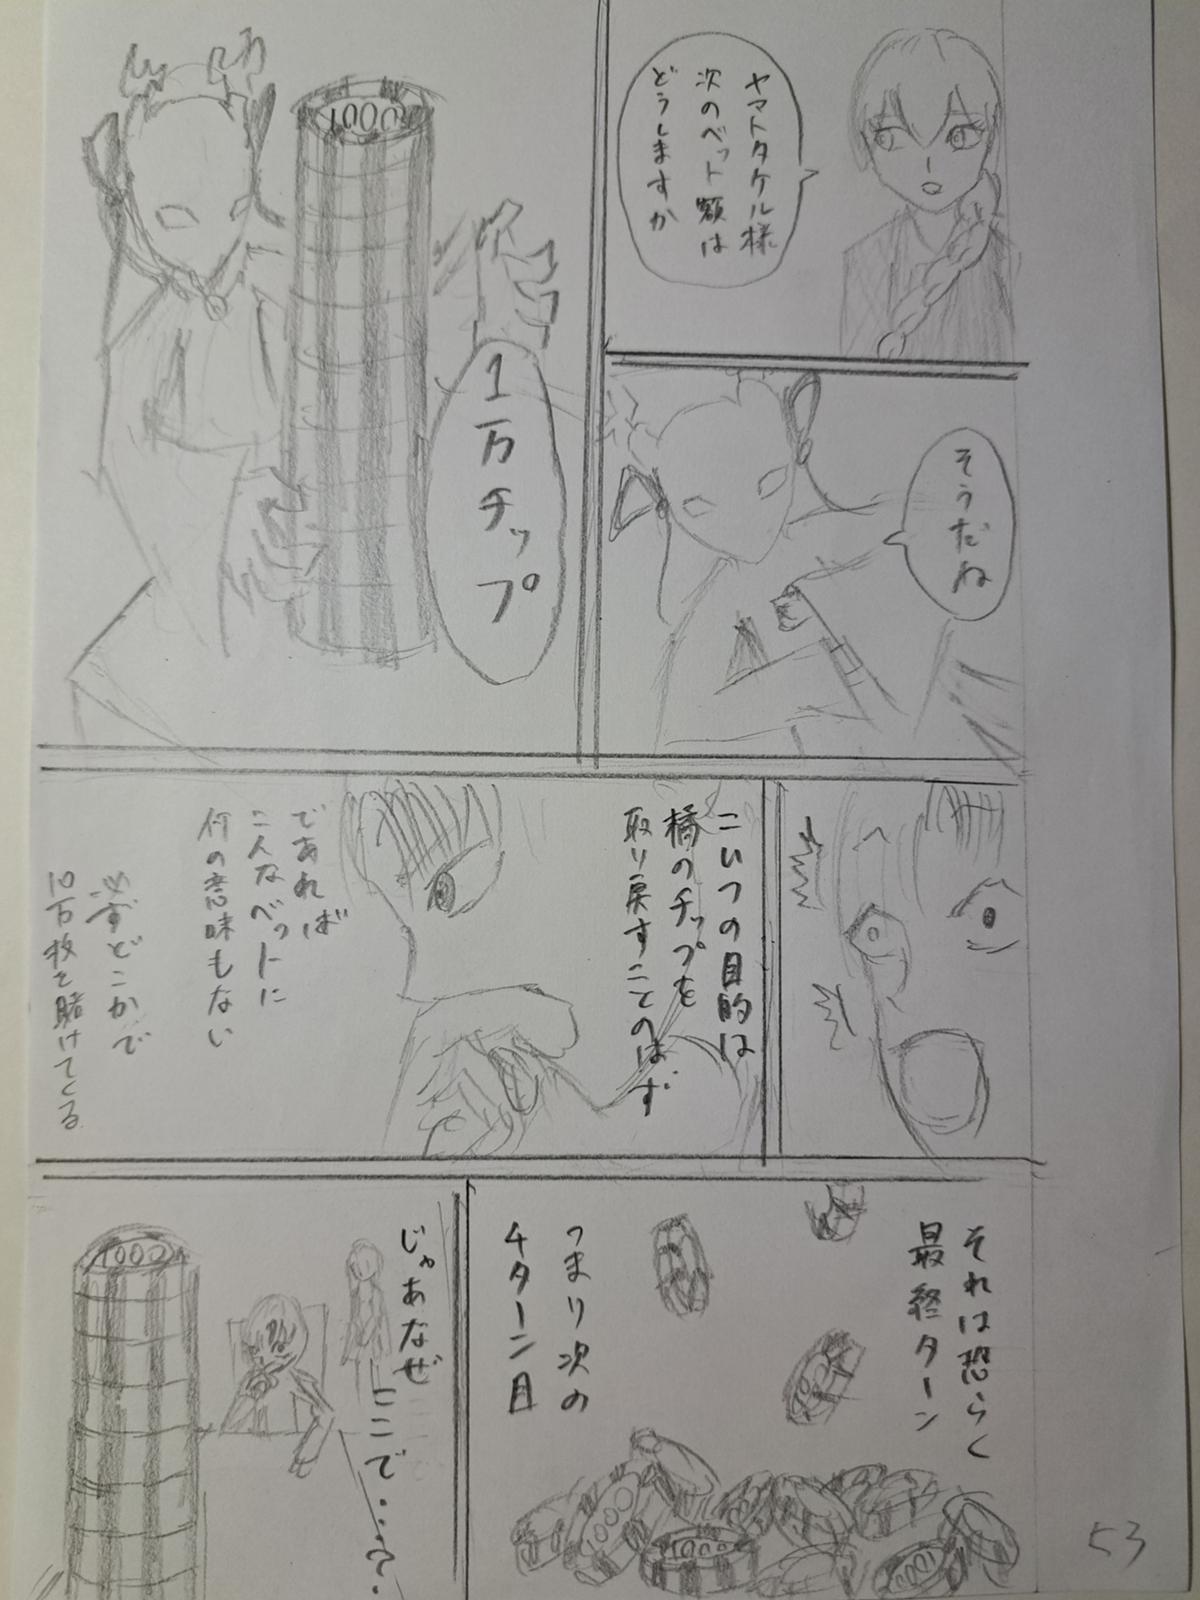 ヤマトタケル様
次のベット額は
どうしますか
そうだね
1000
1万チップ
こいつの目的は
橘のチップを
取り戻すことのはず
であれば
こんなベットに
何の意味もない
必ずどこかで
10万枚を賭けてくる
それは恐らく
最終ターン
つまり次の
4ターン目
1000
1000
1000
じゃあなぜ
ここで…?
1000
53